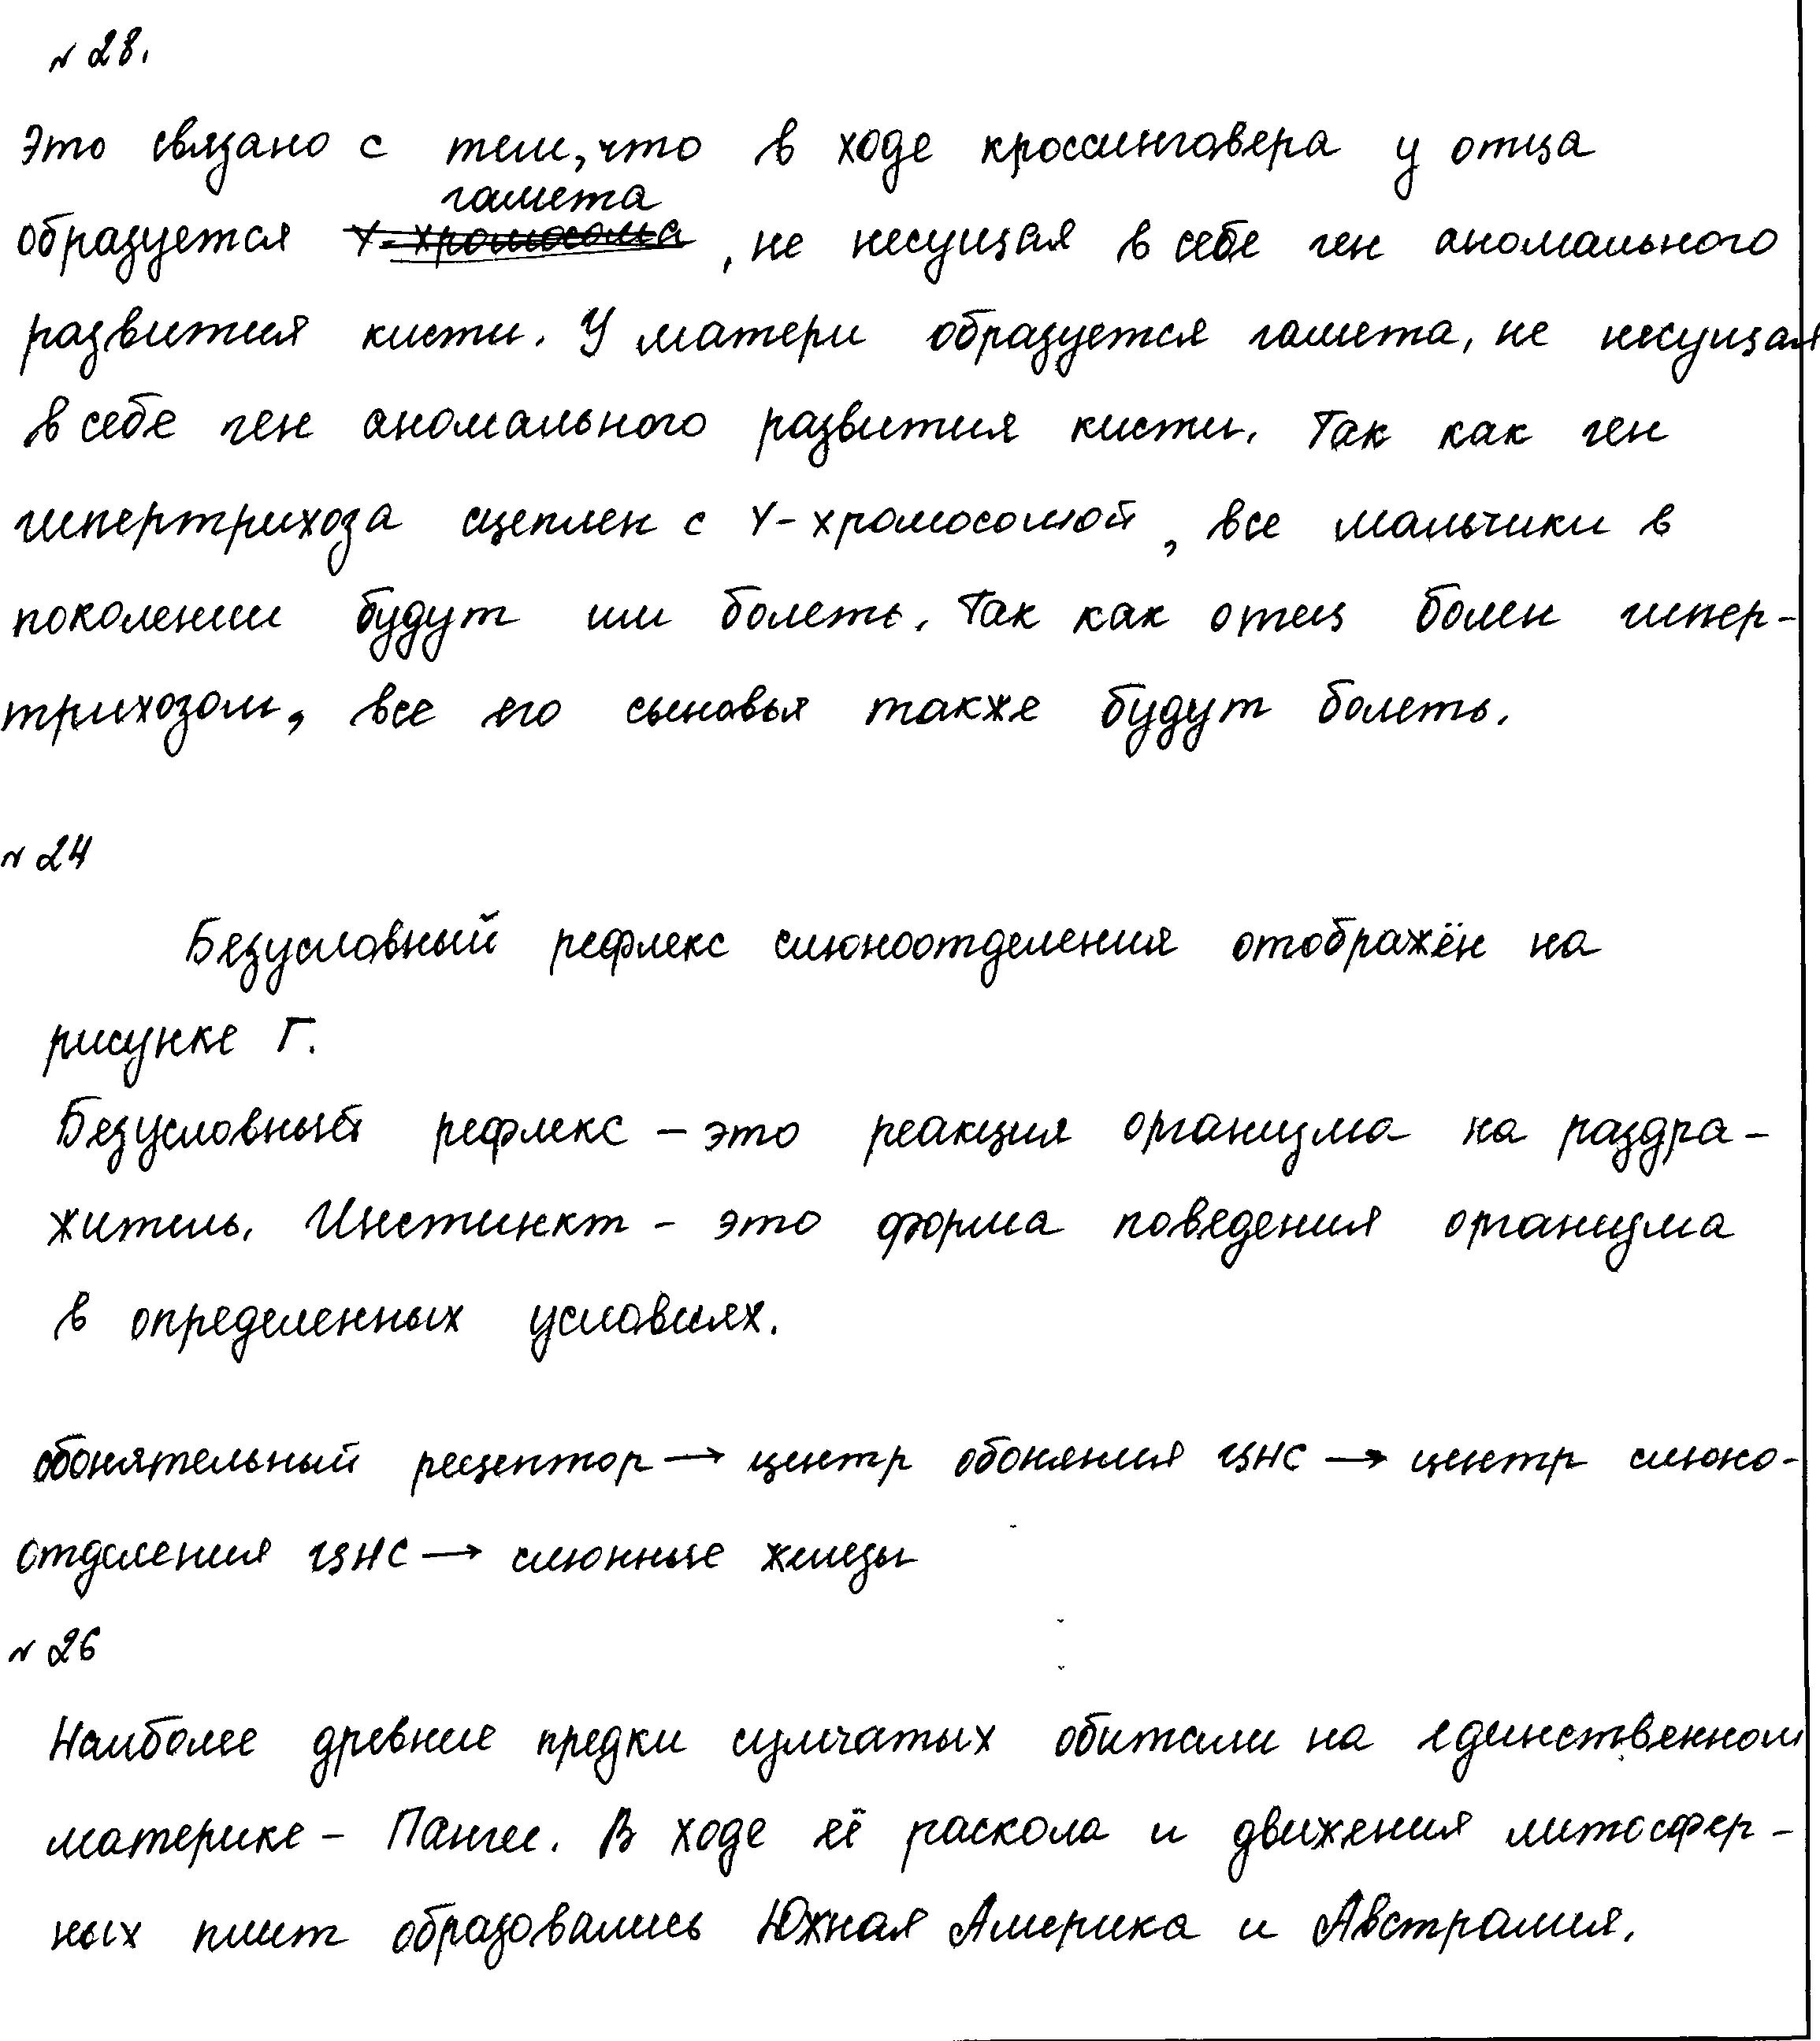 № 28.
Это связано с тем, что в ходе кроссинговера у отца
гамета
образуется Y-хромосома, не несущая в себе ген аномального
развития кисти. У матери образуется гамета, не несущая
в себе ген аномального развития кисти. Так как ген
гипертрихоза сцеплен с Y-хромосомой, все мальчики в
поколении будут им болеть. Так как отец болен гипер-
трихозом, все его сыновья также будут болеть.
№ 24
Безусловный рефлекс слюноотделения отображён на
рисунке Г.
Безусловный рефлекс – это реакция организма на раздра-
житель. Инстинкт – это форма поведения организма
в определенных условиях.
обонятельный рецептор → центр обоняния ЦНС → центр слюно-
отделения ЦНС → слюнные железы
№ 26
Наиболее древние предки сумчатых обитали на единственном
материке – Пангее. В ходе её раскола и движения литосфер-
ных плит образовались Южная Америка и Австралия.